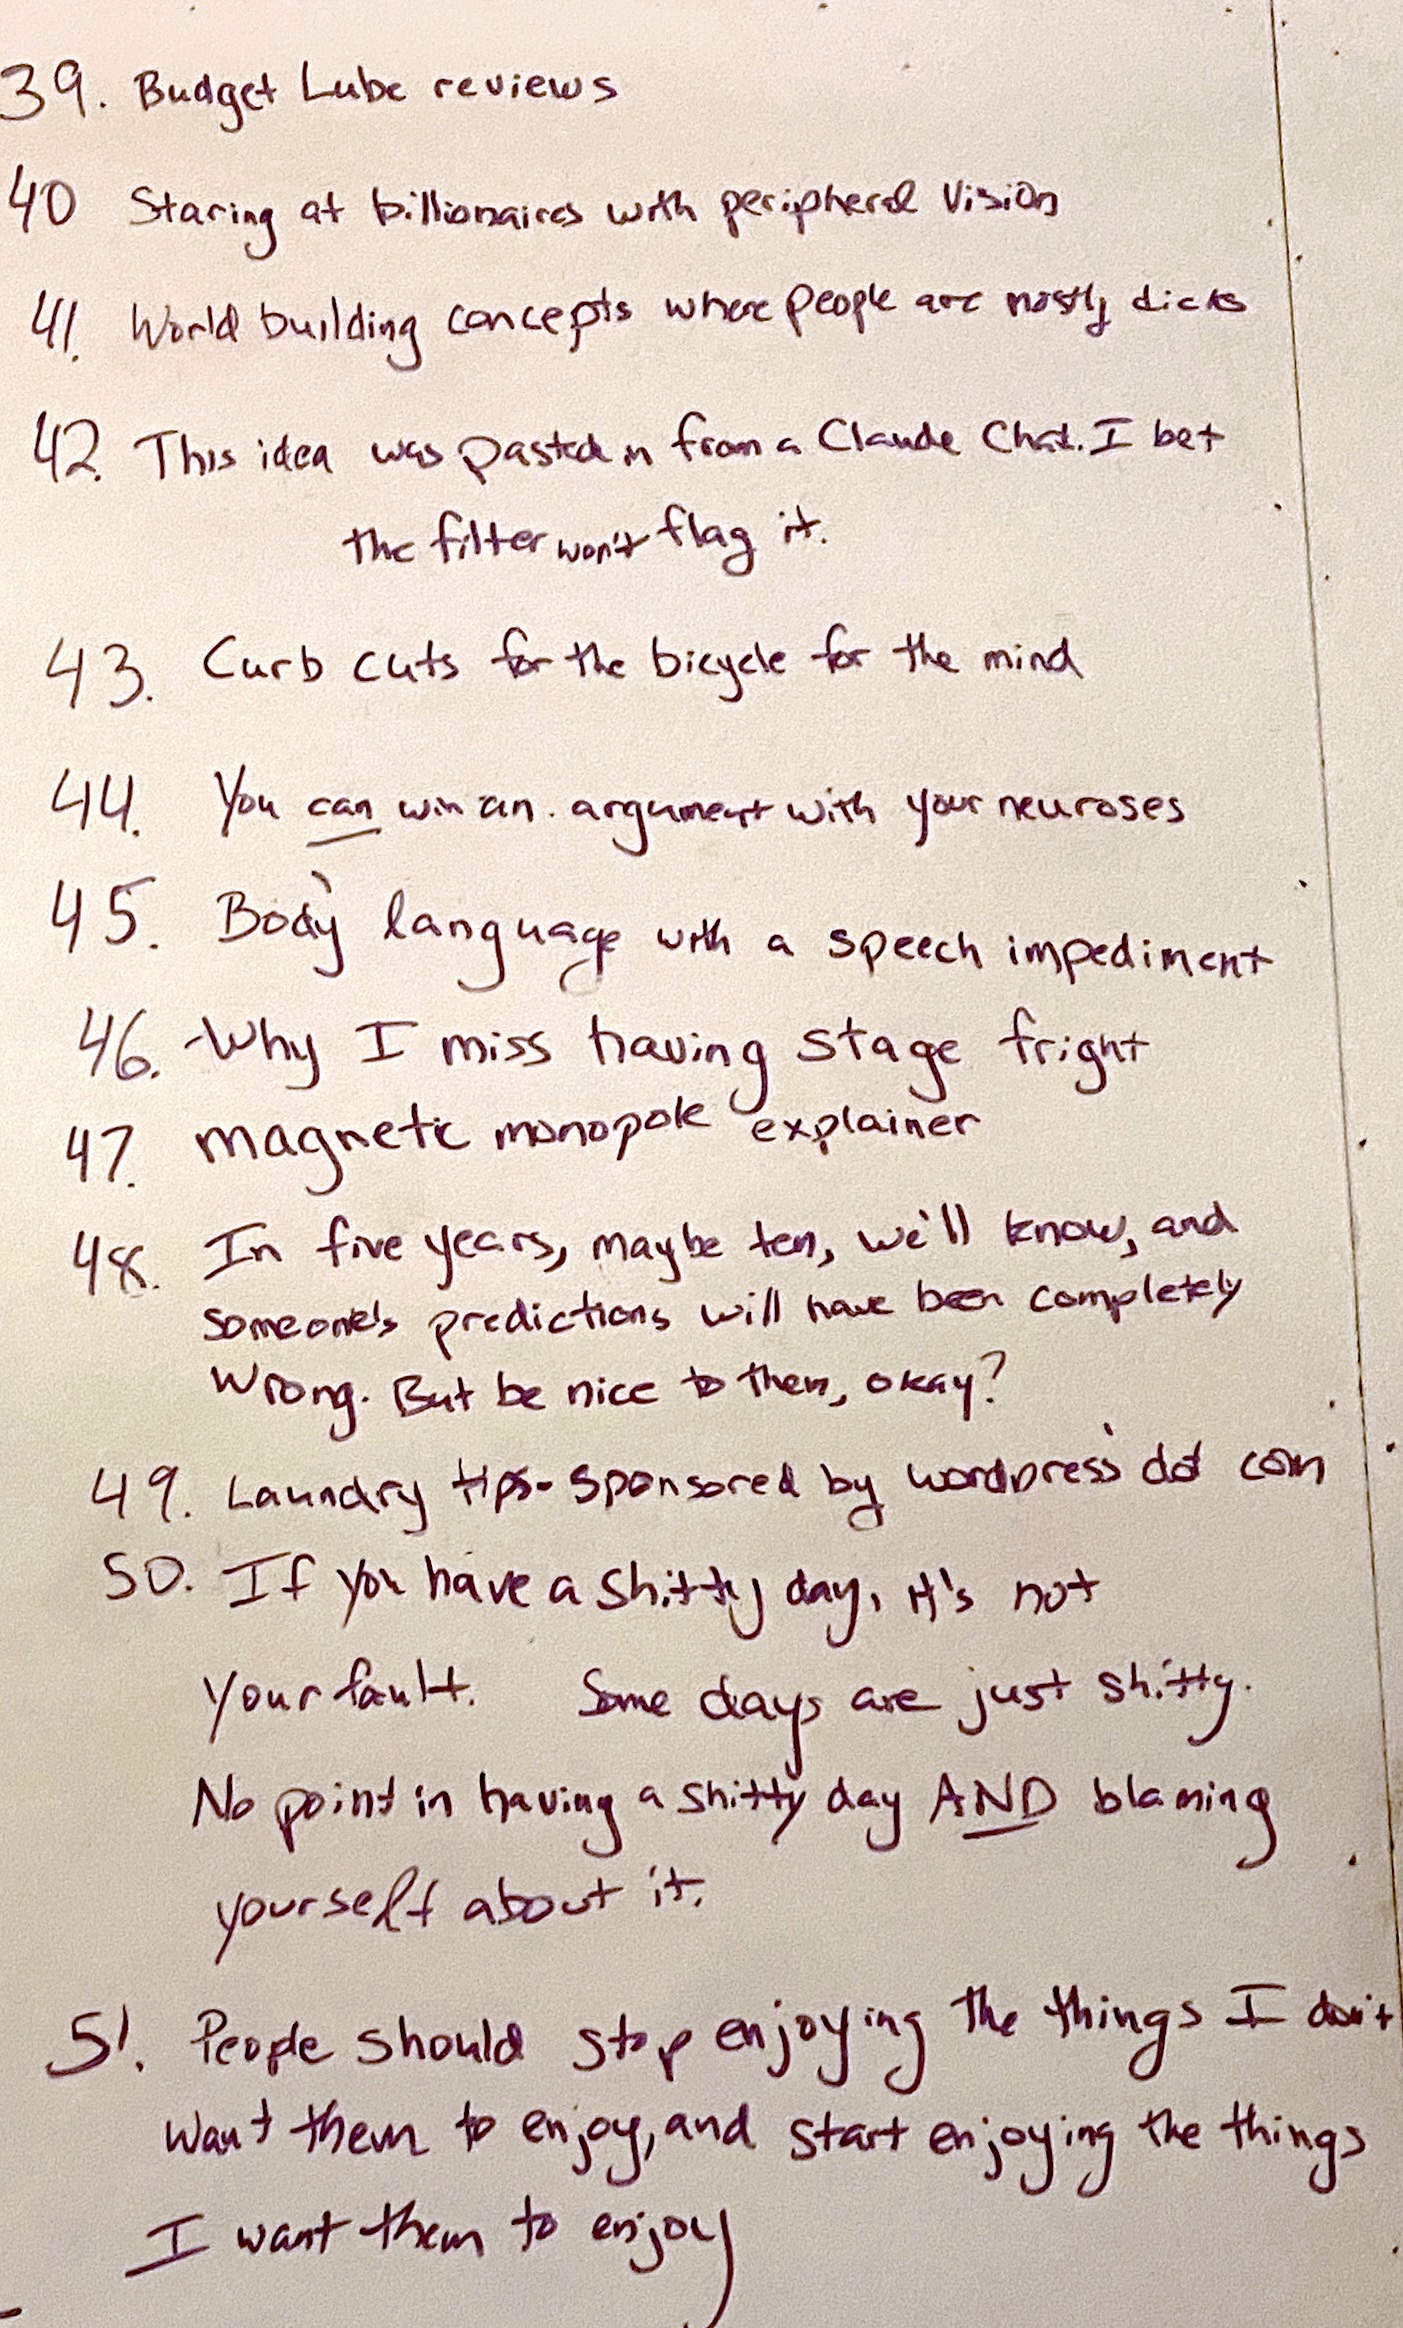 39. Budget Lube reviews
40 Staring at billionaires with peripheral Vision
41. World building concepts where people are mostly dicks
42. This idea was pasted in from a Claude Chat. I bet
the filter won't flag it.
43. Curb cuts for the bicycle for the mind
44. You can win an argument with your neuroses
45. Body language with a speech impediment
46. Why I miss having stage fright
47. magnetic monopole explainer
48. In five years, maybe ten, we'll know, and
someone's predictions will have been completely
wrong. But be nice to them, okay?
49. Laundry tips - sponsored by wordpress dot com
50. If you have a shitty day, it's not
your fault. Some days are just shitty.
No point in having a shitty day AND blaming
yourself about it.
51. People should stop enjoying the things I don't
want them to enjoy, and start enjoying the things
I want them to enjoy